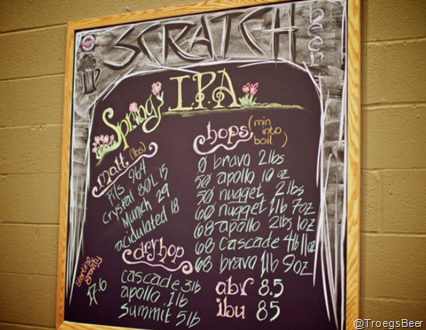 SCRATCH
beer
Spring I.P.A
malt (lbs)
PILS 969
Crystal 80L 15
Munich 29
acidulated 18
dryhop
cascade 3lb
apollo 1lb
Summit 5lb
starting gravity
17.6
hops (min into boil)
0 bravo 2lbs
50 apollo 10oz
50 nugget 2lbs
60 nugget 1lb 7oz
68 apollo 2lbs 1oz
68 Cascade 4lb 11oz
68 bravo 1lb 9oz
abv 8.5
ibu 85
@TroegsBeer